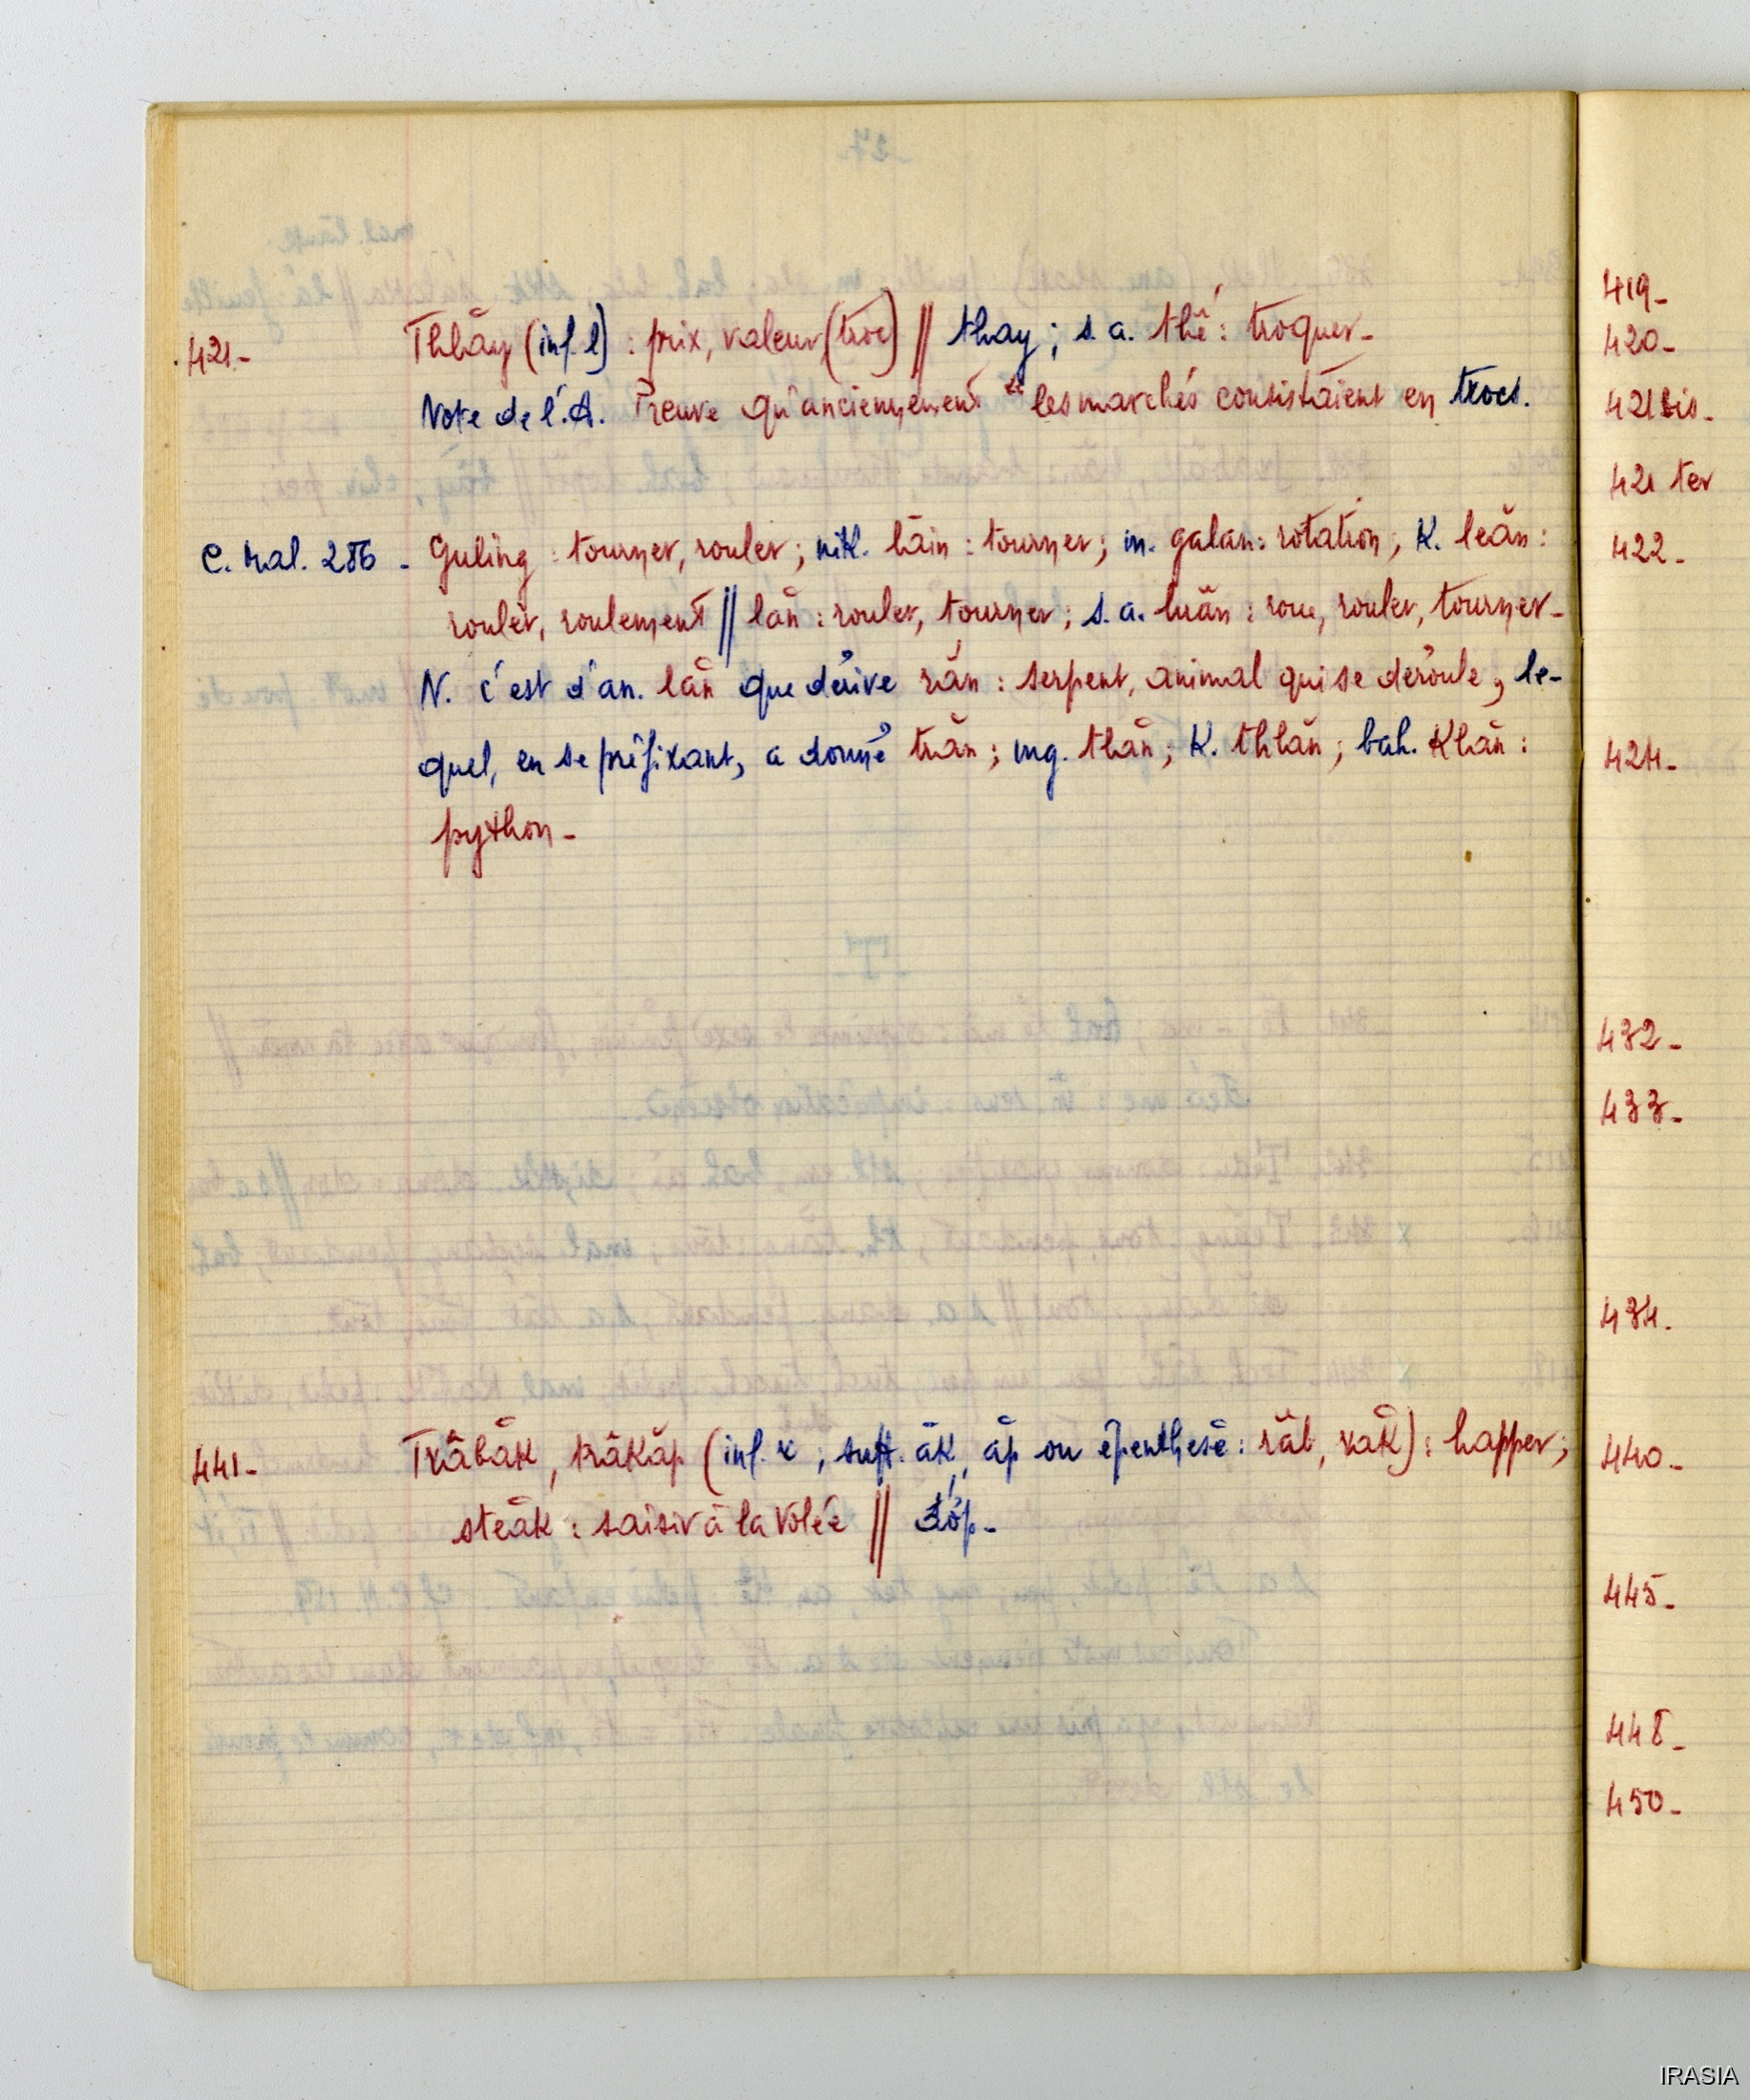 421.- Thlăy (inf. l) : prix, valeur (troc) // thay ; s. a. thế : troquer -
Note de l'.A. Preuve qu'anciennement les marchés consistaient en trocs.
C. Mal. 286 - Guling : tourner, rouler ; nik. lăin : tourner ; in. galan : rotation ; K. leăn :
rouler, roulement // lăn : rouler, tourner ; s. a. luăn : roue, rouler, tourner -
N. c'est d'an. lăn que dérive răn : serpent, animal qui se déroule, le-
quel, en se préfixant, a donné trăn ; mg. thăn ; K. thlăn ; bah. Khăn :
python -
441 - Trâbăk, trâkăp (inf. r ; suff. ăk, ăp ou épenthèse : răb, răk) : happer ;
steăk : saisir à la volée // đớp -
419 -
420 -
421 bis -
421 ter
422 -
424 -
432 -
433 -
434 -
440 -
445 -
448 -
450 -
IRASIA